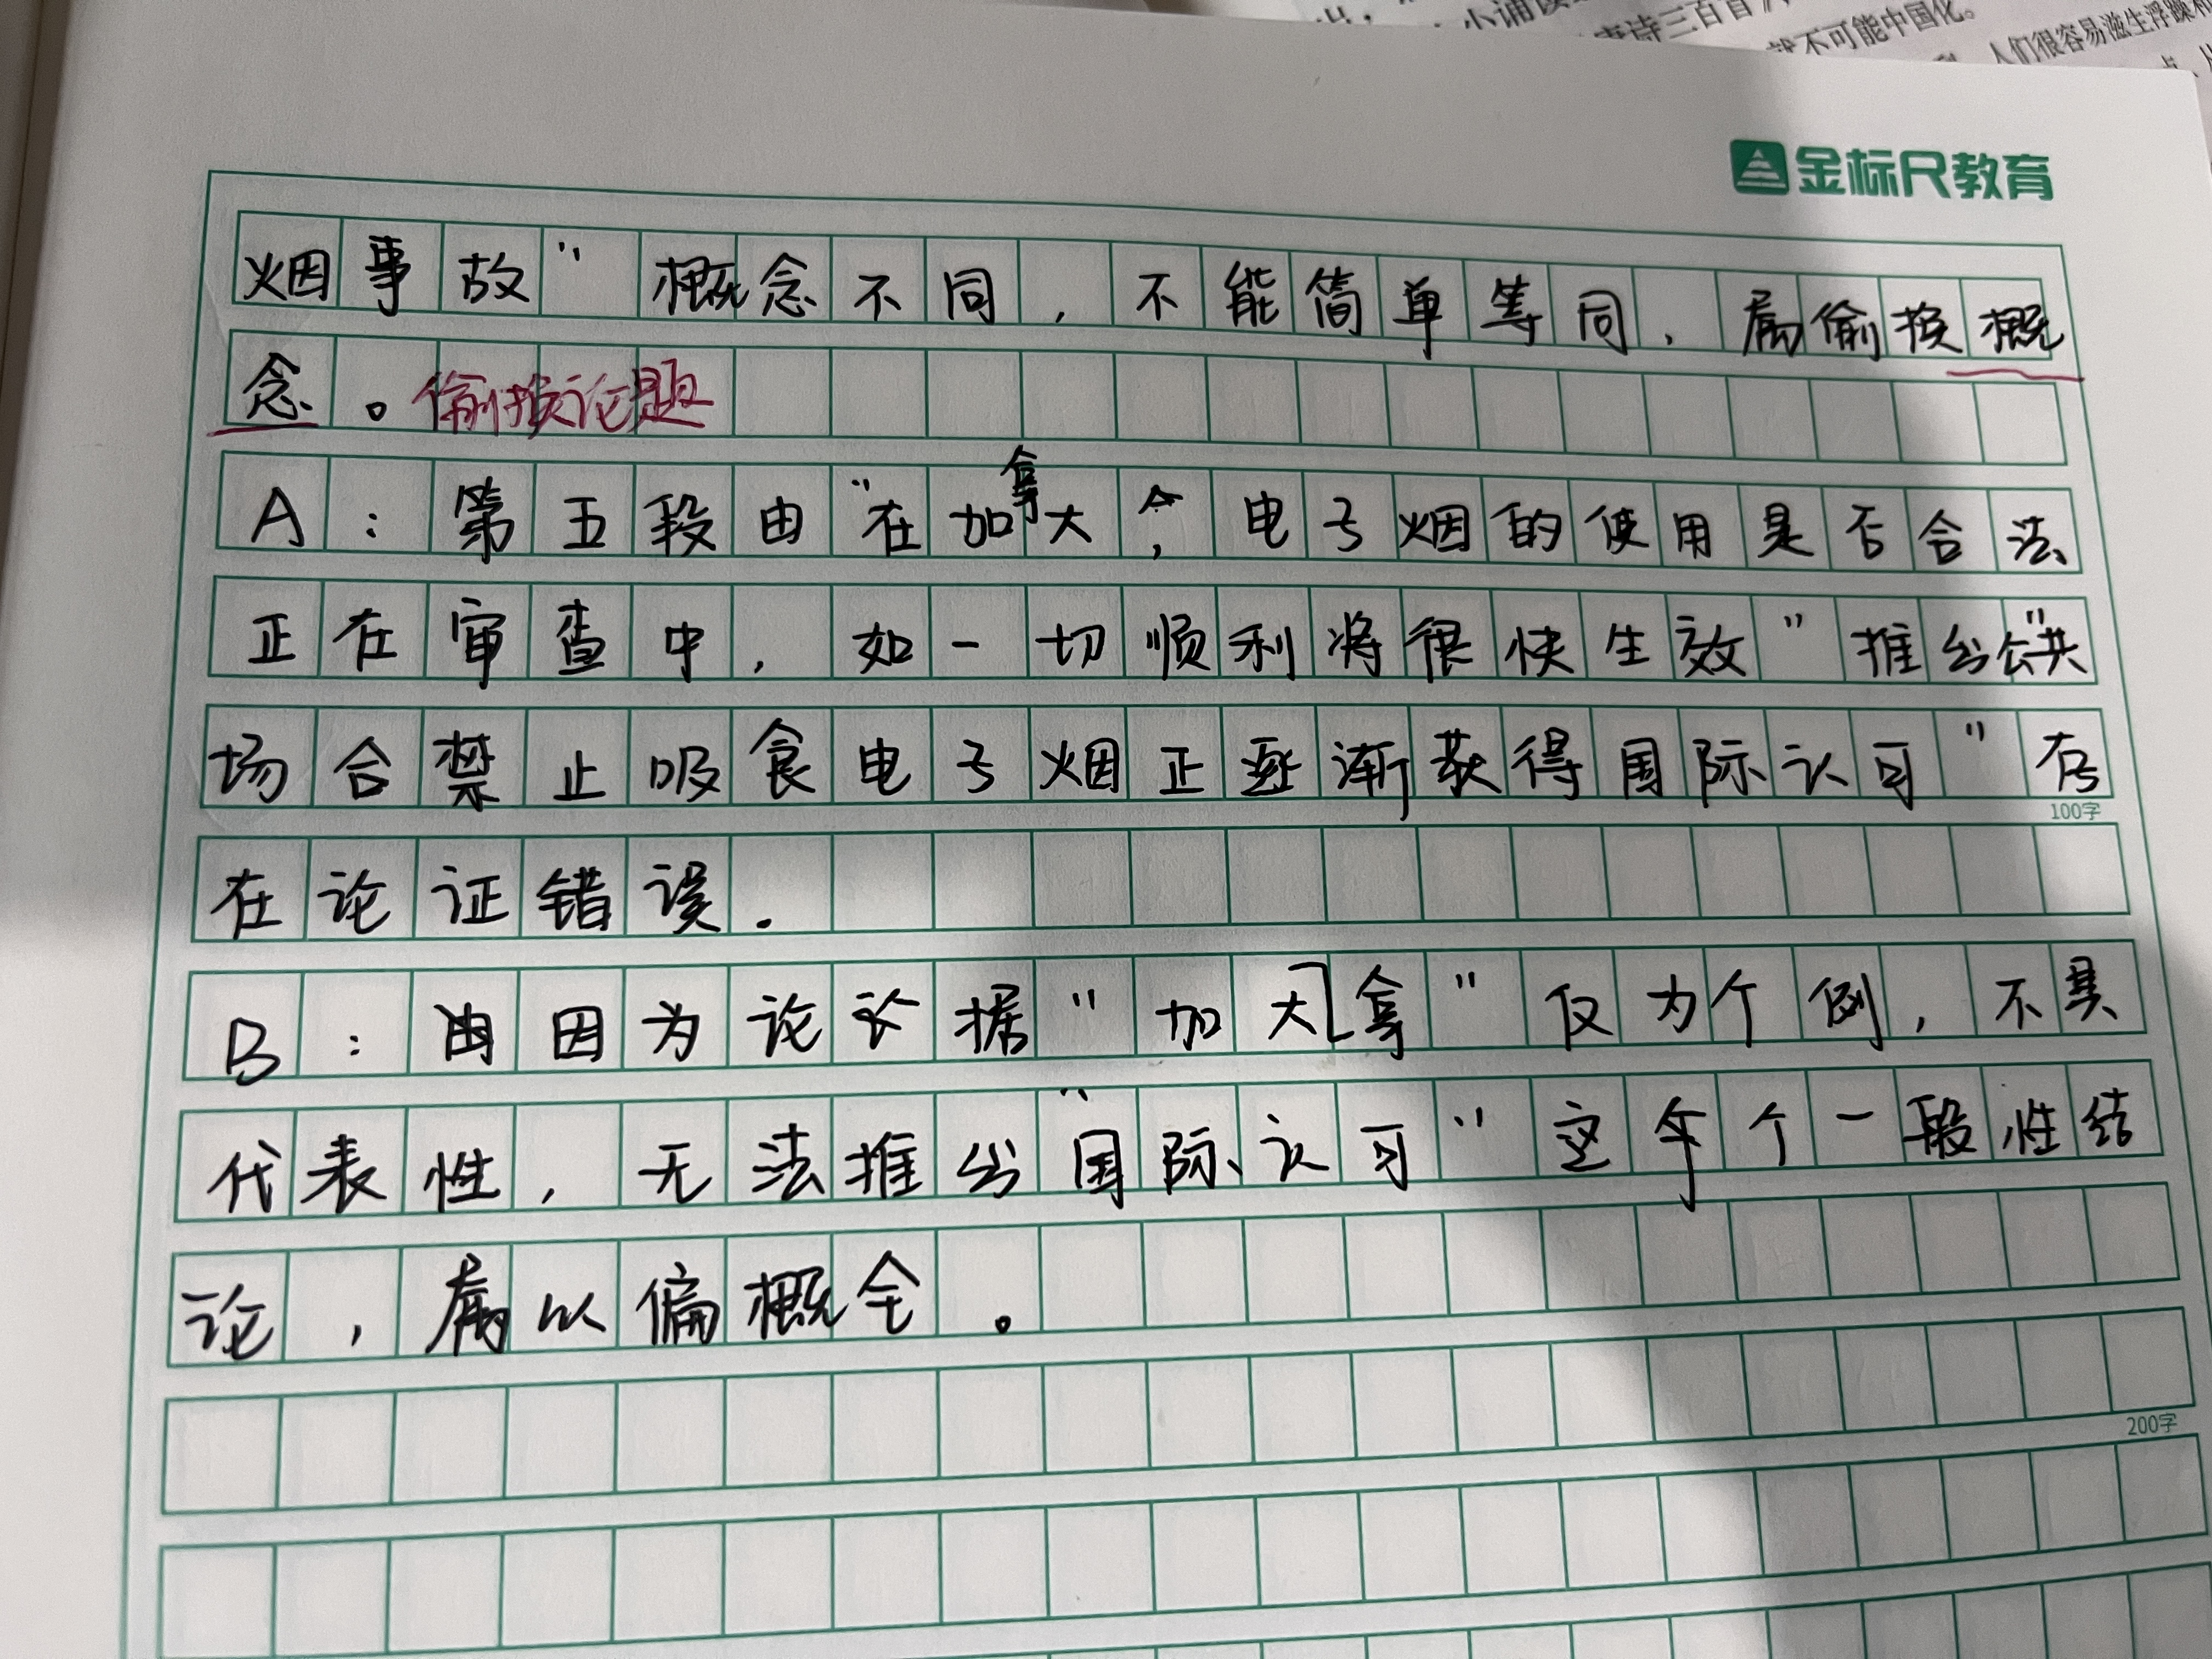 小诵读
唐诗三百首
就不可能中国化。
人们很容易滋生浮躁和
金标尺教育
烟事故”概念不同,不能简单等同,属偷换概
念。偷换论题
A:第五段由“在加拿大,电子烟的使用是否合法
正在审查中,如一切顺利将很快生效”推出“公共
场合禁止吸食电子烟正逐渐获得国际认可”存
100字
在论证错误.
B:因为论据“加拿大”仅为个例,不具
代表性,无法推出“国际认可”这个一般性结
论,属以偏概全。
200字